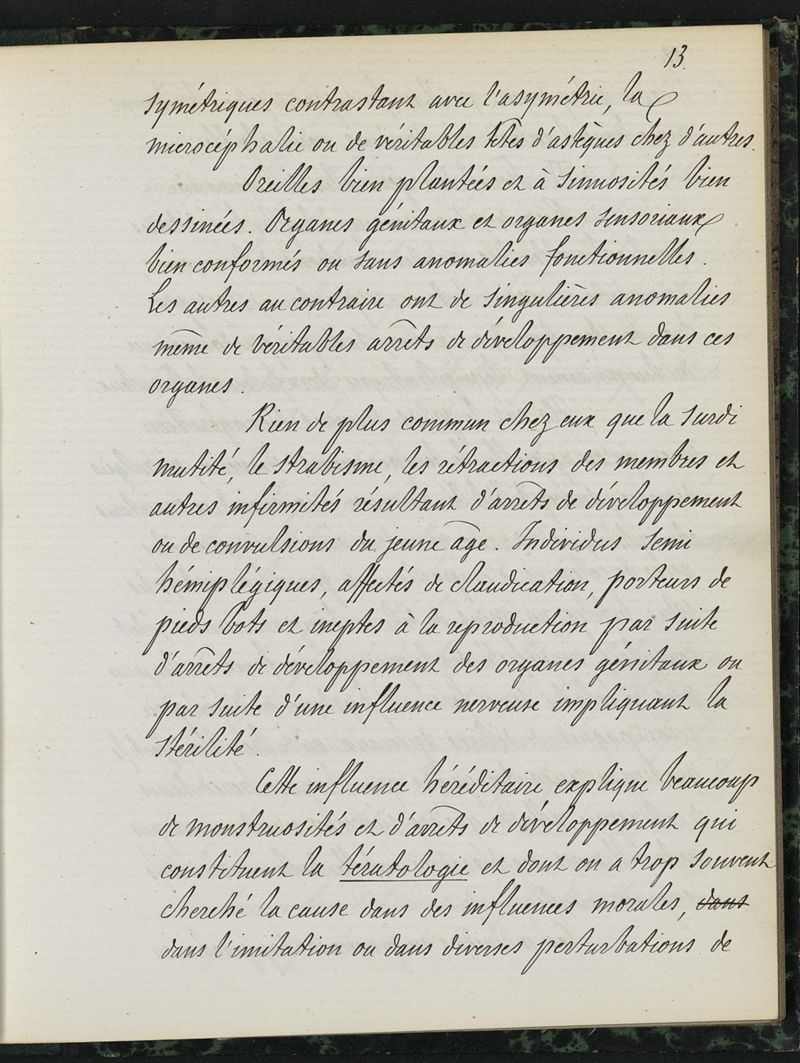 13.
symétriques contrastant avec l'asymétrie, la
microcéphalie ou de véritables têtes d'astèques chez d'autres.
Oreilles bien plantées et à sinuosités bien
dessinées. Organes génitaux et organes sensoriaux
bien conformés ou sans anomalies fonctionnelles.
Les autres au contraire ont de singulières anomalies
même de véritables arrêts de développement dans ces
organes.
Rien de plus commun chez eux que la surdi
mutité, le strabisme, les rétractions des membres et
autres infirmités résultant d'arrêts de développement
ou de convulsions du jeune âge. Individus semi
hémiplégiques, affectés de claudication, porteurs de
pieds bots et ineptes à la reproduction par suite
d'arrêts de développement des organes génitaux ou
par suite d'une influence nerveuse impliquant la
stérilité.
Cette influence héréditaire explique beaucoup
de monstruosités et d'arrêts de développement qui
constituent la tératologie et dont on a trop souvent
cherché la cause dans des influences morales, dans
dans l'imitation ou dans diverses perturbations de